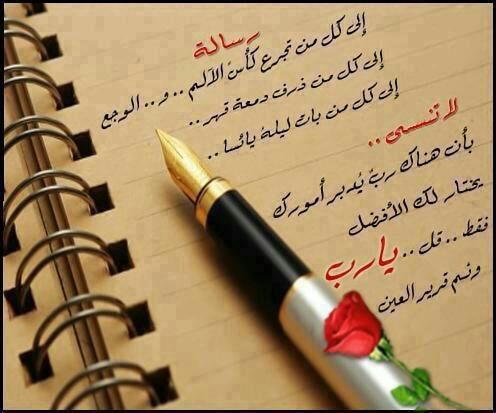 رسالة
إلى كل من تجرع كأس الآلم .. و.. الوجع
إلى كل من ذرف دمعة قهر ..
إلى كل من بات ليلهُ يائسا ..
لا تنسى ..
بأن هناك ربٌ يُدبر أمورك
يختار لك الأفضل
فقط .. قل .. يارب
ونم قرير العين